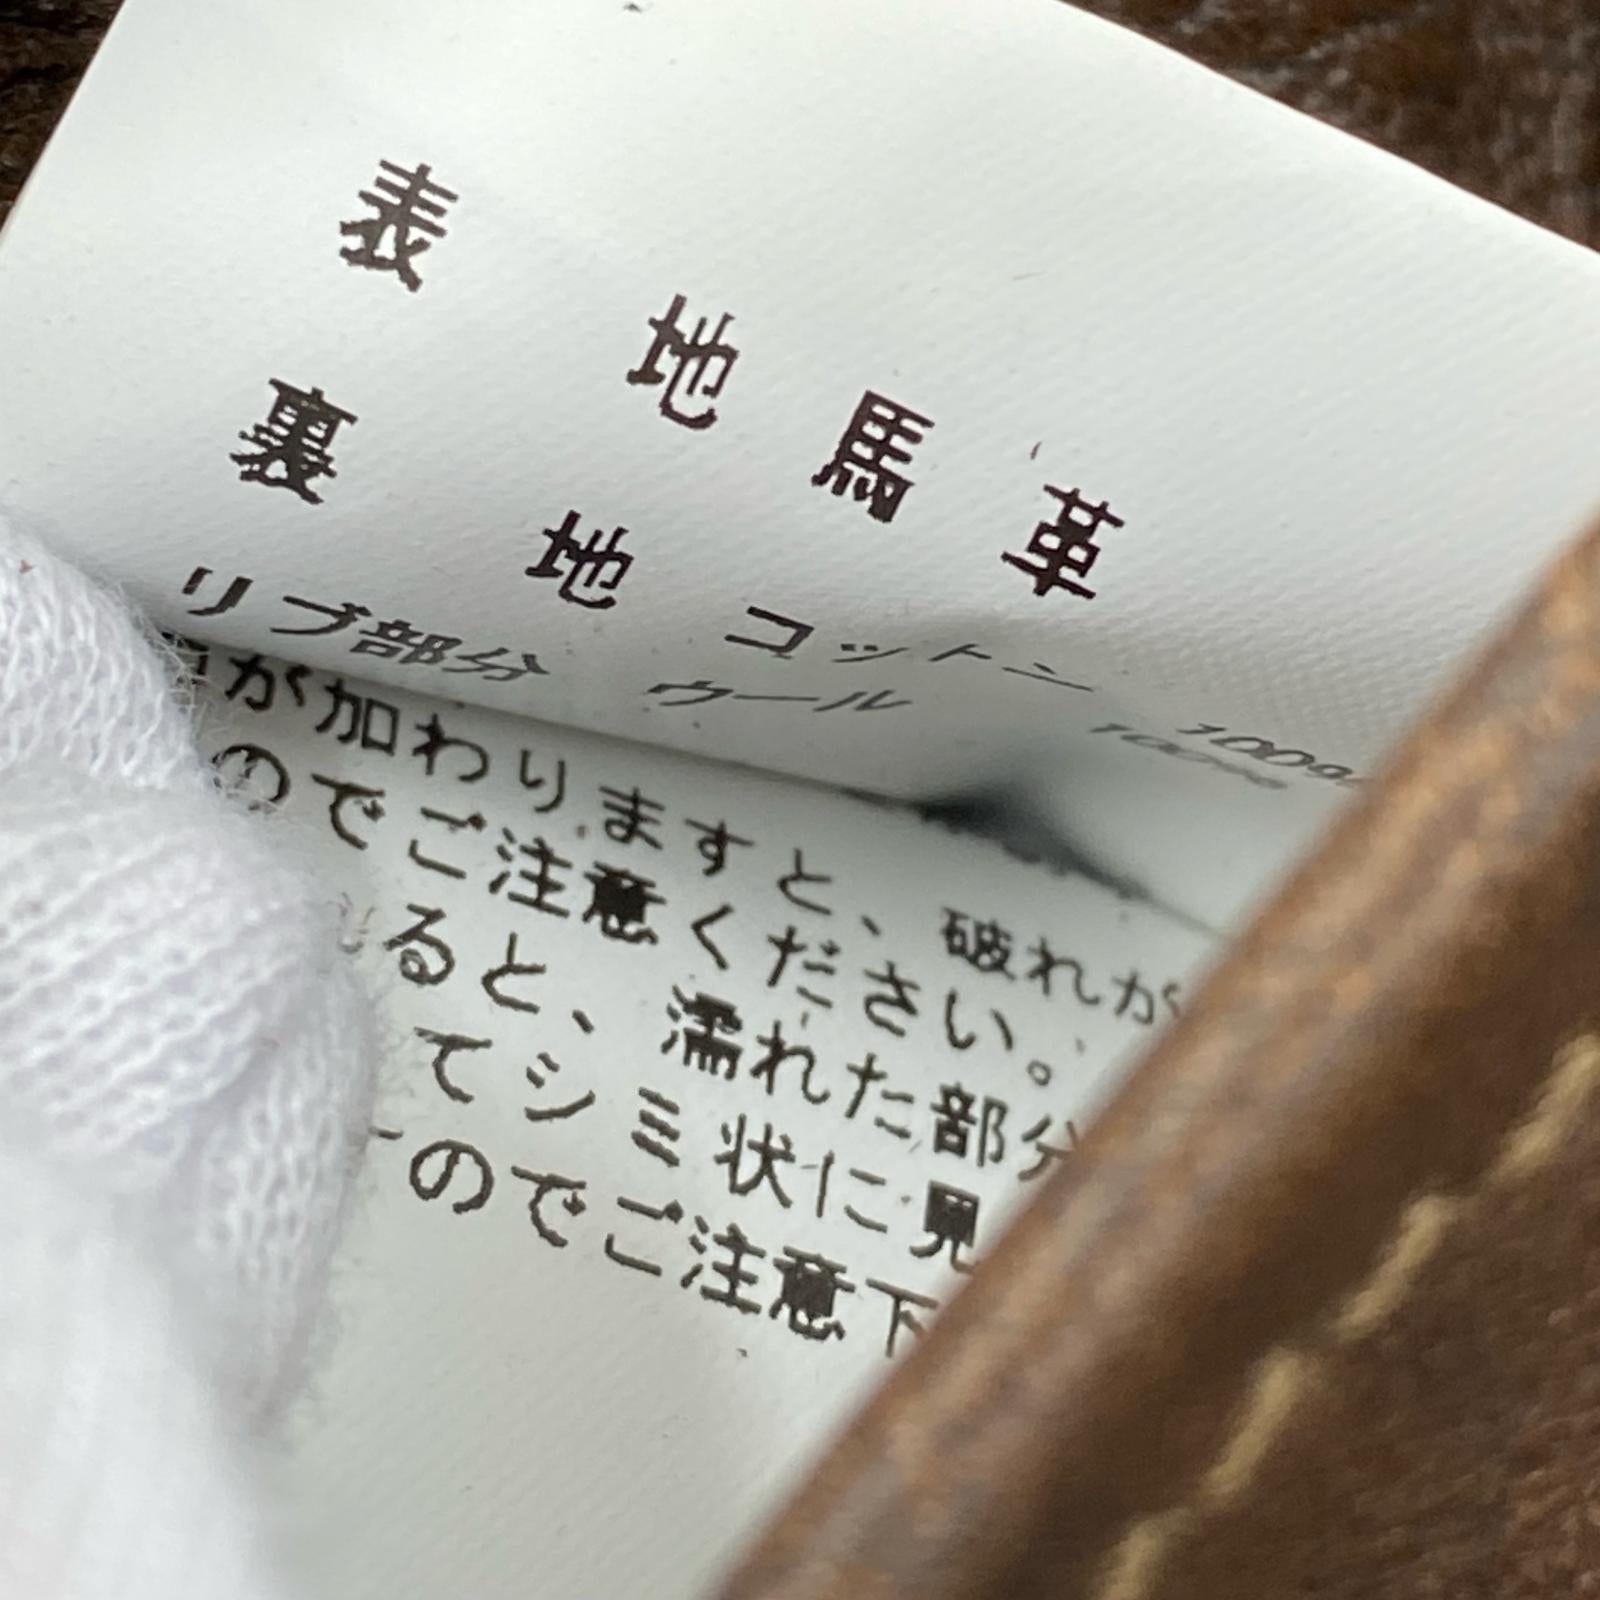 表 地 馬 革
裏 地 コットン 100%
リブ部分 ウール 100%
が加わりますと、破れが
のでご注意ください。
ると、濡れた部分
てシミ状に見
のでご注意下